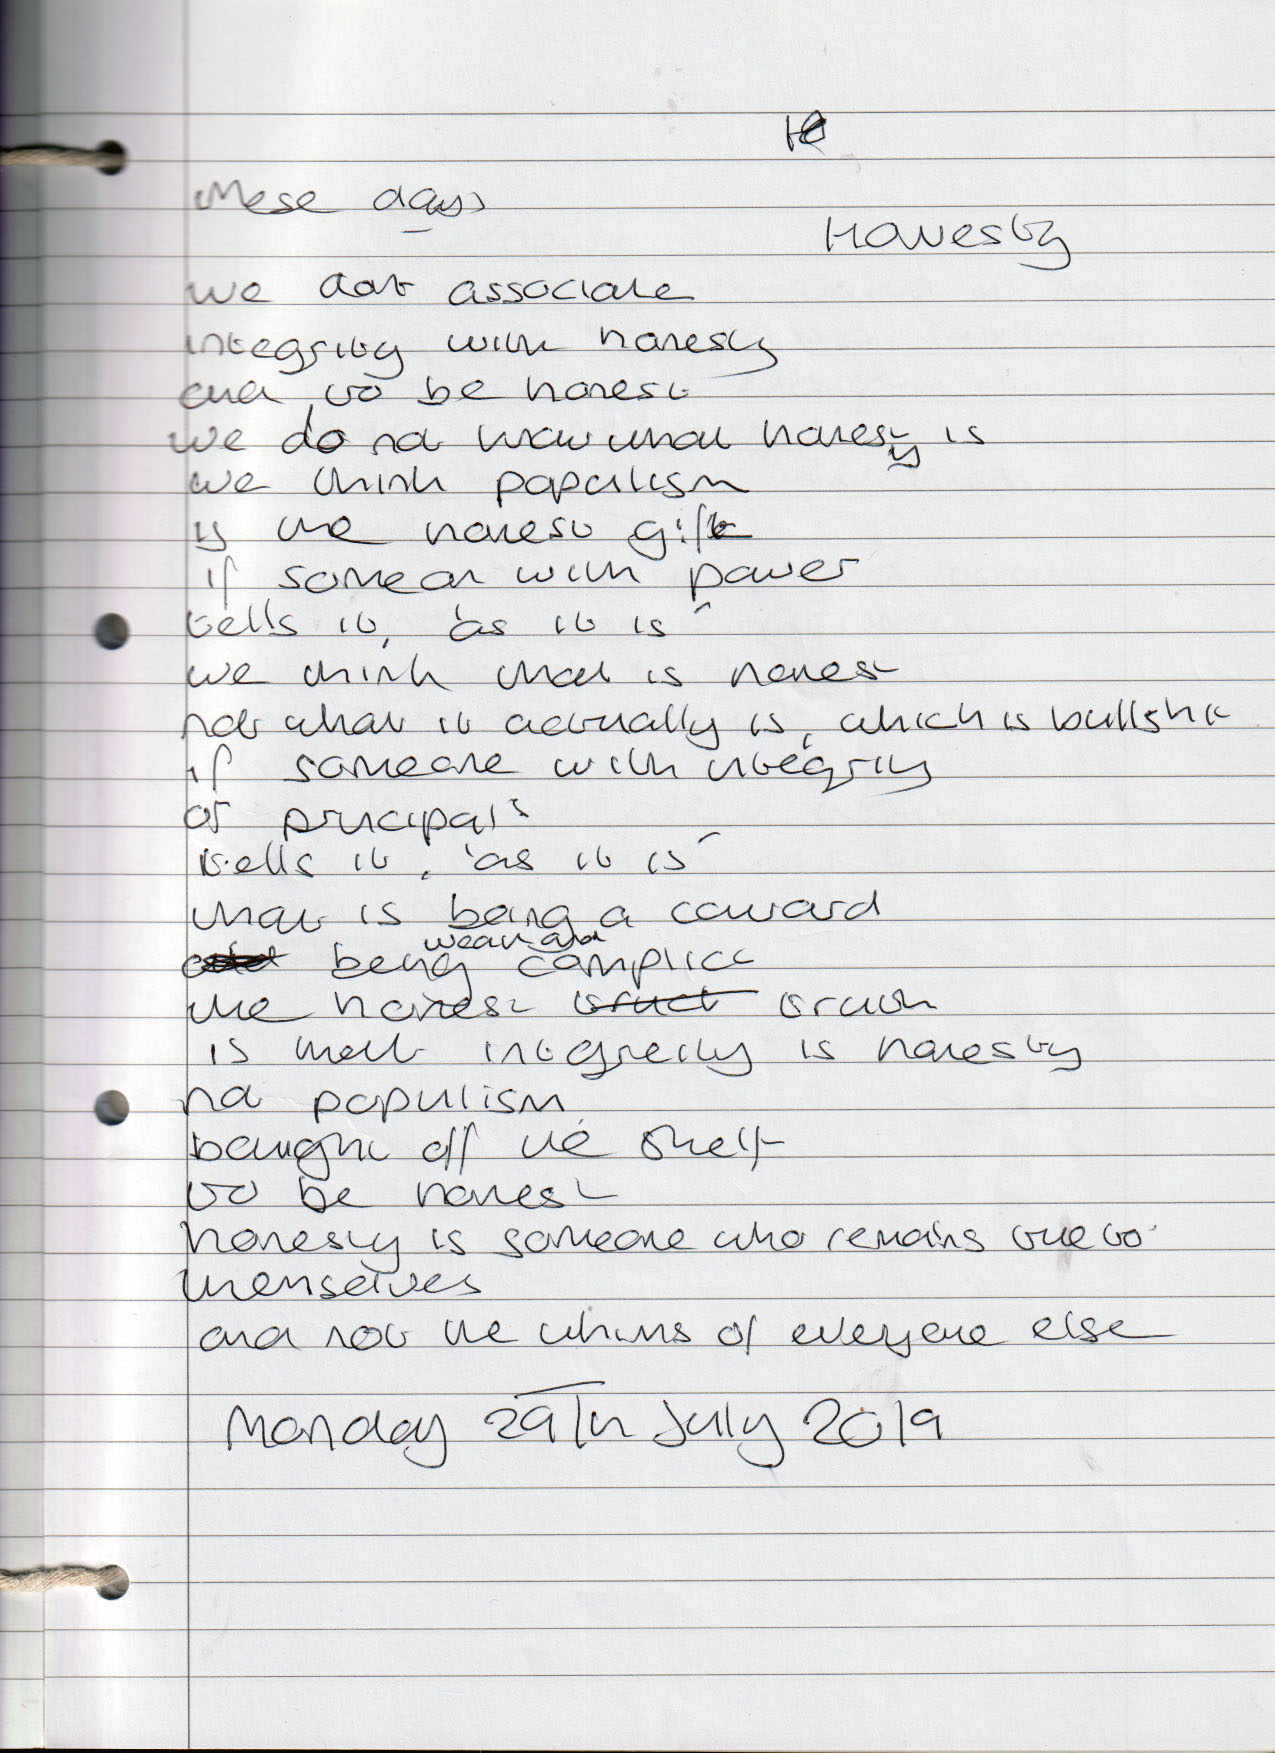 These days
Honesty
we dont associate
integrity with honesty
and to be honest
we do not know what honesty is
we think populism
is the honest gift
if someon with power
tells it, 'as it is'
we think that is honest
not what it actually is, which is bullshit
if someone with integrity
or principals
tells it, 'as it is'
that is being a coward
weak and
being complicit
the honest truct truth
is that integreity is honesty
not populism
bought off the shelf
to be honest
honesty is someone who remains true to
themselves
and not the whims of everyone else
Monday 29th July 2019